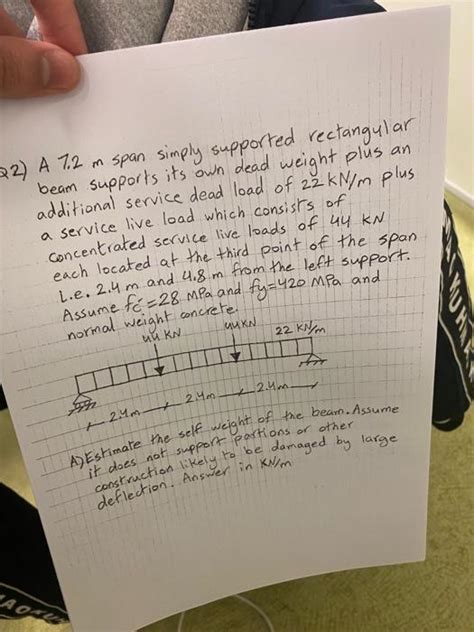 Q2) A 7.2 m span simply supported rectangular
beam supports its own dead weight plus an
additional service dead load of 22 kN/m plus
a service live load which consists of
concentrated service live loads of 44 kN
each located at the third point of the span
i.e. 2.4 m and 4.8 m from the left support.
Assume f'c = 28 MPa and fy = 420 MPa and
normal weight concrete.
44 kN 44 kN 22 kN/m
2.4m 2.4m 2.4m
A) Estimate the self weight of the beam. Assume
it does not support partions or other
construction likely to be damaged by large
deflection. Answer in kN/m